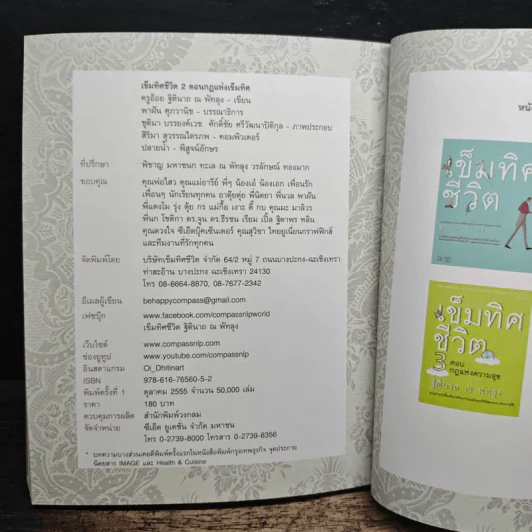 เข็มทิศชีวิต 2 ตอนกฎแห่งเข็มทิศ
ครูอ้อย ฐิตินาถ ณ พัทลุง - เขียน
พาฝัน ศุภวานิช - บรรณาธิการ
ชุติมา บรรยงค์เวช ศักดิ์ชัย ศรีวัฒนาปิติกุล - ภาพประกอบ
สิริมา สุวรรณไตรภพ - คอมพิวเตอร์
ปลายน้ำ - พิสูจน์อักษร
ที่ปรึกษา พิชาญ มหาชนก ทะเล ณ พัทลุง วรลักษณ์ ทองมาก
ขอบคุณ คุณพ่อไสว คุณแม่อารีย์ พี่ๆ น้องเอ๋ น้องเอก เพื่อนรัก
เพื่อนๆ นักเรียนทุกคน อาตุ้ยตุ่ย พี่นิตยา พี่นวล พาฝัน
พี่แตงโม รุ่ง ตุ้ย กร แม่กื้อ เงาะ ตี๋ กบ คุณมะ มาลิวร
พี่นก โชติกา ดร.จูน ดร.ธีรชน เรียม เปิ้ล ฐิตาพร หลิน
คุณดวงใจ ซีเอ็ดบุ๊คเซ็นเตอร์ คุณสุวิชา ไทยยูเนี่ยนกราฟฟิกส์
และทีมงานที่รักทุกคน
จัดพิมพ์โดย บริษัทเข็มทิศชีวิต จำกัด 64/2 หมู่ 7 ถนนบางปะกง-ฉะเชิงเทรา
ท่าสะอ้าน บางปะกง ฉะเชิงเทรา 24130
โทร 08-6664-8870, 08-7677-2342
อีเมลผู้เขียน behappycompass@gmail.com
เฟซบุ๊ก www.facebook.com/compassnlpworld
เข็มทิศชีวิต ฐิตินาถ ณ พัทลุง
เว็บไซต์ www.compassnlp.com
ช่องยูทูป www.youtube.com/compassnlp
อินสตาแกรม Oi_Dhitinart
ISBN 978-616-76560-5-2
พิมพ์ครั้งที่ 1 ตุลาคม 2555 จำนวน 50,000 เล่ม
ราคา 180 บาท
ควบคุมการผลิต สำนักพิมพ์วงกลม
จัดจำหน่าย ซีเอ็ด ยูเคชั่น จำกัด มหาชน
โทร 0-2739-8000 โทรสาร 0-2739-8356
* บทความบางส่วนเคยตีพิมพ์ครั้งแรกในหนังสือพิมพ์กรุงเทพธุรกิจ จุดประกาย
นิตยสาร IMAGE และ Health & Cuisine
หนัง
เข็มทิศ
ชีวิต
เข็มทิศ
ชีวิต
3 ตอน
กฎแห่งความสุข
ฐิตินาถ ณ พัทลุง